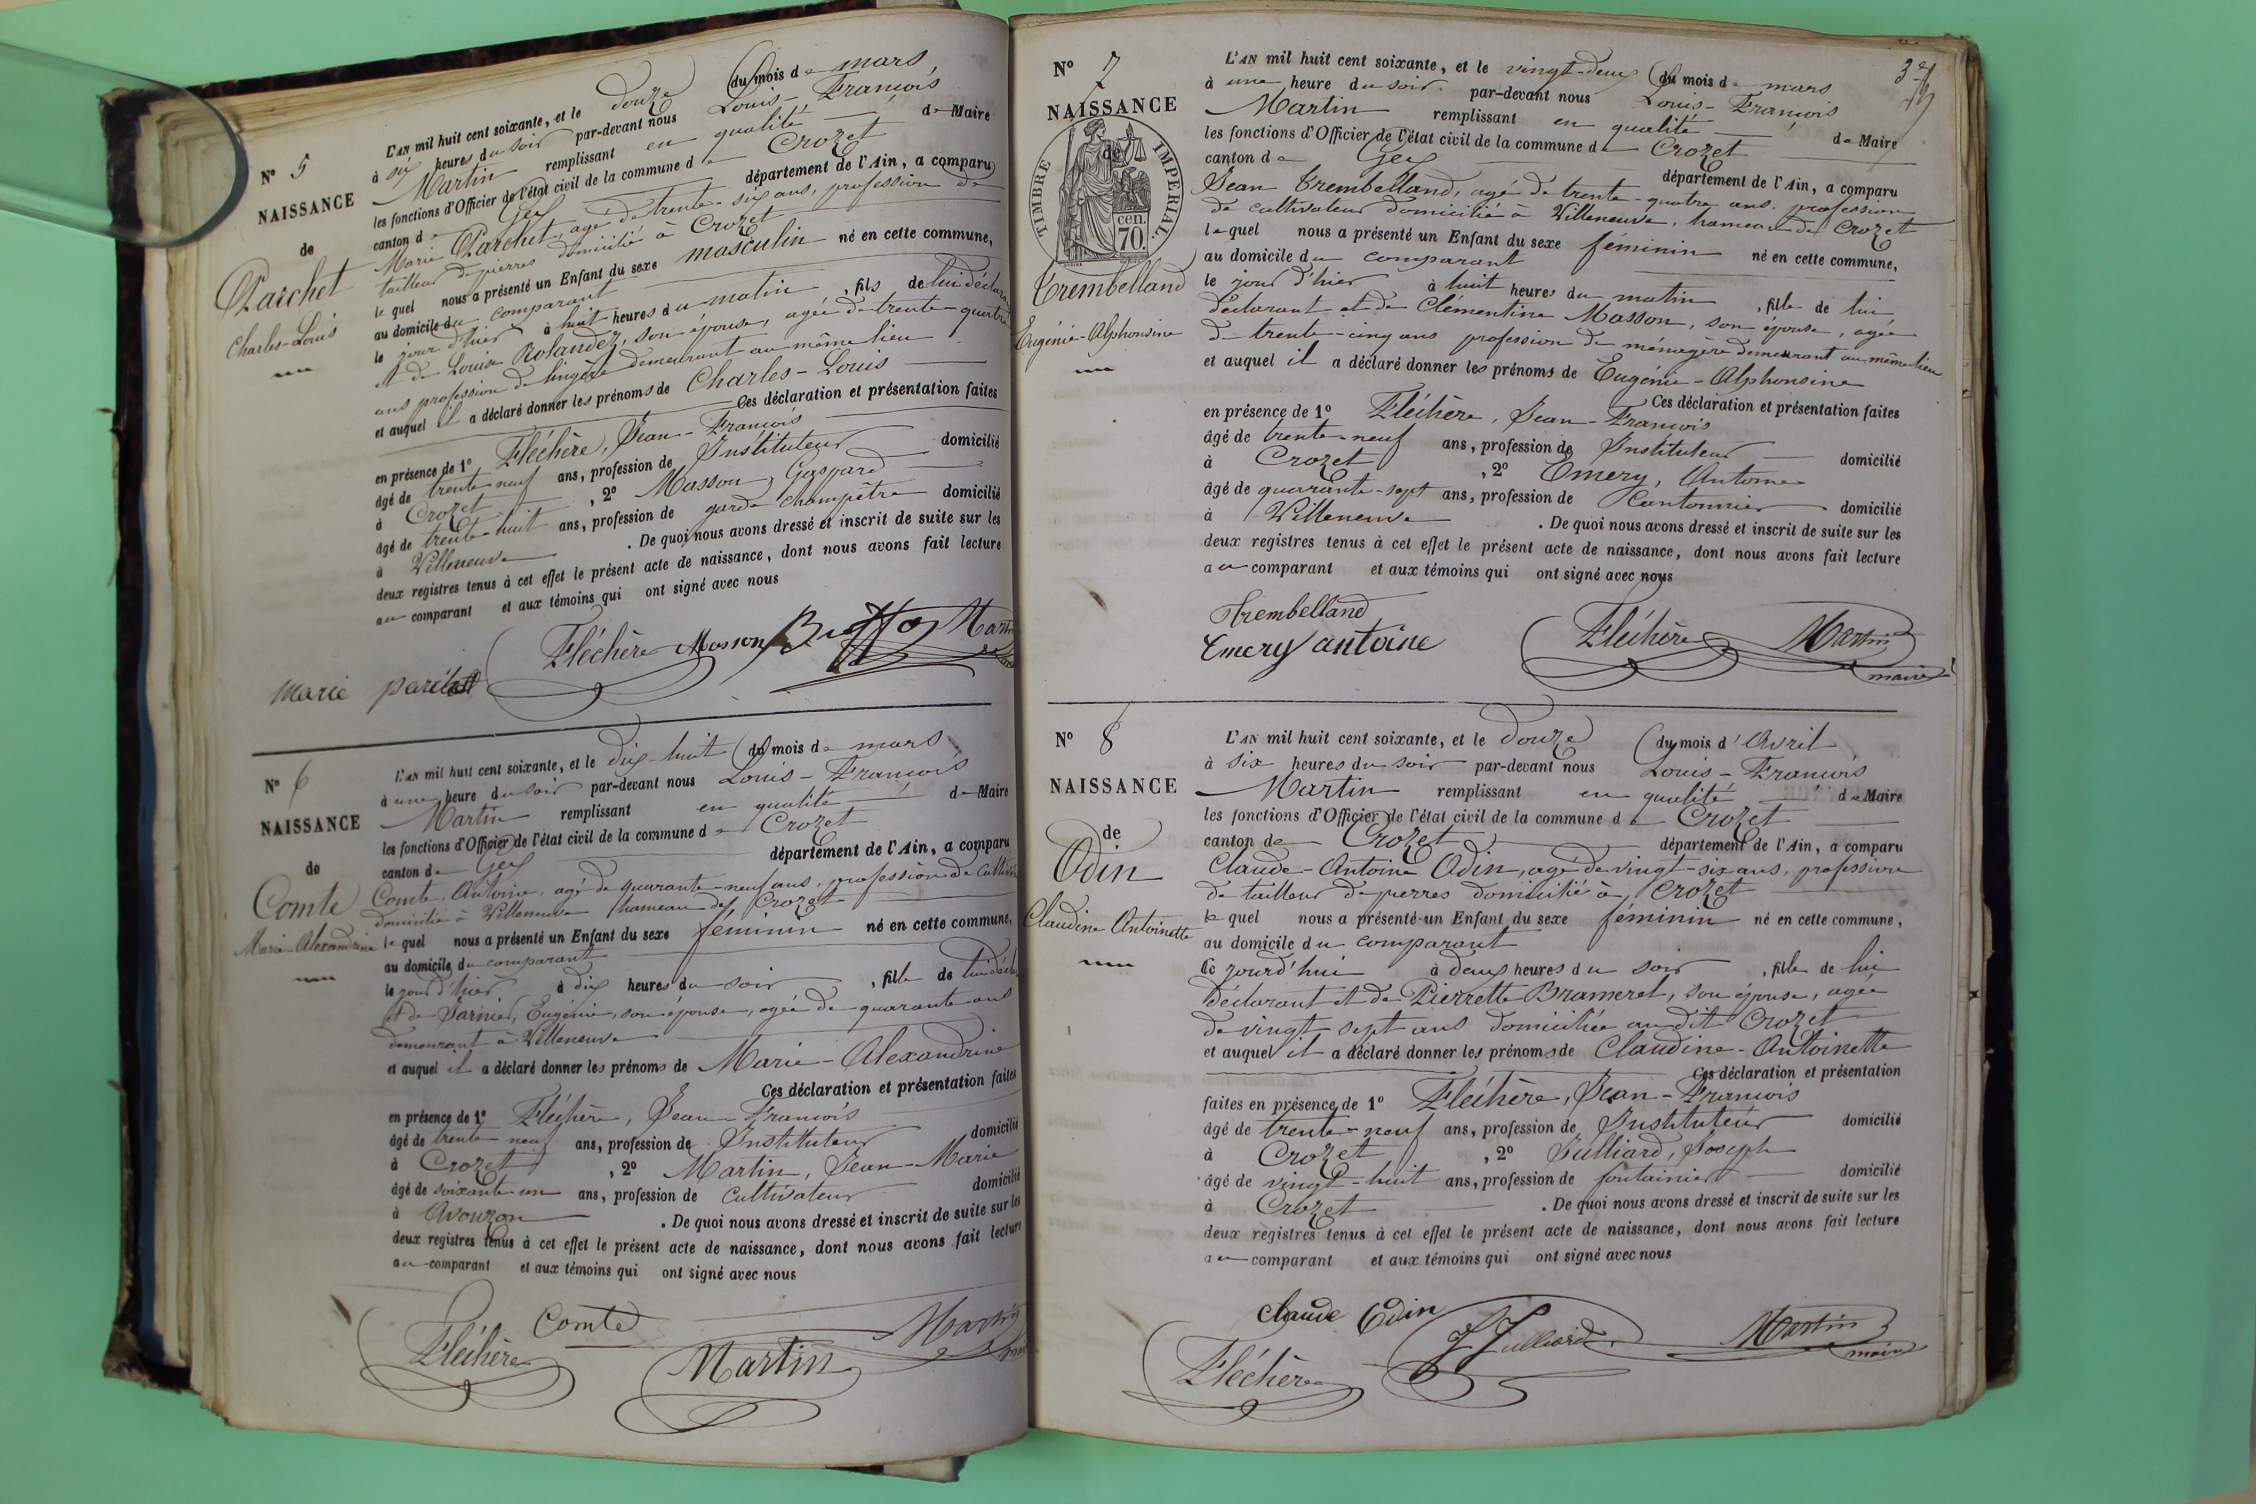 N° 5
NAISSANCE
de
Parchet
Charles-Louis
L'AN mil huit cent soixante, et le douze du mois de mars,
à six heures du soir par-devant nous Louis-François
Martin remplissant en qualité de Maire
les fonctions d'Officier de l'état civil de la commune de Crozet
canton de Gex département de l'Ain, a comparu
Marie Parchet, agé de trente-six ans, profession de
tailleur de pierres domicilié à Crozet
le quel nous a présenté un Enfant du sexe masculin né en cette commune,
au domicile du comparant
le jour d'hier à huit heures du matin, fils de lui déclarant
et de Louise Rolandez, son épouse, agée de trente-quatre
ans profession de lingère demeurant au même lieu
et auquel il a déclaré donner les prénoms de Charles-Louis
Ces déclaration et présentation faites
en présence de 1° Fléchère, Jean-François
âgé de trente-neuf ans, profession de Instituteur domicilié
à Crozet, 2° Masson, Gaspard
âgé de trente-huit ans, profession de garde champêtre domicilié
à Villeneuve. De quoi nous avons dressé et inscrit de suite sur les
deux registres tenus à cet effet le présent acte de naissance, dont nous avons fait lecture
au comparant et aux témoins qui ont signé avec nous
Fléchère Masson Martin
marie parchet
N° 6
NAISSANCE
de
Comte
Marie-Alexandrine
L'AN mil huit cent soixante, et le dix-huit du mois de mars
à une heure du soir par-devant nous Louis-François
Martin remplissant en qualité de Maire
les fonctions d'Officier de l'état civil de la commune de Crozet
canton de Gex département de l'Ain, a comparu
Comte, Antoine, agé de quarante-neuf ans, profession de
domicilié à Villeneuve hameau de Crozet
le quel nous a présenté un Enfant du sexe féminin né en cette commune,
au domicile du comparant
le jour d'hier à dix heures du soir, fille de lui
et de Jarnier, Eugénie, son épouse, agée de quarante ans
demeurant à Villeneuve
et auquel il a déclaré donner les prénoms de Marie-Alexandrine
Ces déclaration et présentation faites
en présence de 1° Fléchère, Jean-François
âgé de trente neuf ans, profession de Instituteur domicilié
à Crozet, 2° Martin, Jean-Marie
âgé de soixante-un ans, profession de cultivateur domicilié
à Avouzon. De quoi nous avons dressé et inscrit de suite sur les
deux registres tenus à cet effet le présent acte de naissance, dont nous avons fait lecture
au comparant et aux témoins qui ont signé avec nous
Comte Martin
Fléchère Martin
N° 7
NAISSANCE
de
TIMBRE IMPÉRIAL.
cen.
70.
Trembelland
Eugénie-Alphonsine
L'AN mil huit cent soixante, et le vingt-deux du mois de mars
à une heure du soir par-devant nous Louis-François
Martin remplissant en qualité de Maire
les fonctions d'Officier de l'état civil de la commune de Crozet
canton de Gex département de l'Ain, a comparu
Jean Trembelland, agé de trente-quatre ans, profession
de cultivateur domicilié à Villeneuve, hameau de Crozet
le quel nous a présenté un Enfant du sexe féminin né en cette commune,
au domicile du comparant
le jour d'hier à huit heures du matin, fille de lui
déclarant et de Clémentine Masson, son épouse, agée
de trente-cinq ans profession de ménagère demeurant au même lieu
et auquel il a déclaré donner les prénoms de Eugénie-Alphonsine
Ces déclaration et présentation faites
en présence de 1° Fléchère, Jean-François
âgé de trente-neuf ans, profession de Instituteur domicilié
à Crozet, 2° Emery, Antoine
âgé de quarante-sept ans, profession de Cantonnier domicilié
à Villeneuve. De quoi nous avons dressé et inscrit de suite sur les
deux registres tenus à cet effet le présent acte de naissance, dont nous avons fait lecture
au comparant et aux témoins qui ont signé avec nous
Trembelland
Emery antoine Fléchère Martin
maire
N° 8
NAISSANCE
de
Odin
Claudine Antoinette
L'AN mil huit cent soixante, et le douze du mois d'Avril
à six heures du soir par-devant nous Louis-François
Martin remplissant en qualité de Maire
les fonctions d'Officier de l'état civil de la commune de Crozet
canton de Crozet département de l'Ain, a comparu
Claude-Antoine Odin, agé de vingt-six ans, profession
de tailleur de pierres domicilié à Crozet
le quel nous a présenté un Enfant du sexe féminin né en cette commune,
au domicile du comparant
ce jourd'hui à deux heures du soir, fille de lui
déclarant et de Pierrette Brameret, son épouse, agée
de vingt sept ans domiciliée au dit Crozet
et auquel il a déclaré donner les prénoms de Claudine-Antoinette
Ces déclaration et présentation
faites en présence de 1° Fléchère, Jean-François
âgé de trente-neuf ans, profession de Instituteur domicilié
à Crozet, 2° Julliard, Joseph
âgé de vingt-huit ans, profession de fontainier domicilié
à Crozet. De quoi nous avons dressé et inscrit de suite sur les
deux registres tenus à cet effet le présent acte de naissance, dont nous avons fait lecture
au comparant et aux témoins qui ont signé avec nous
claude Odin J Julliard Martin
maire
Fléchère